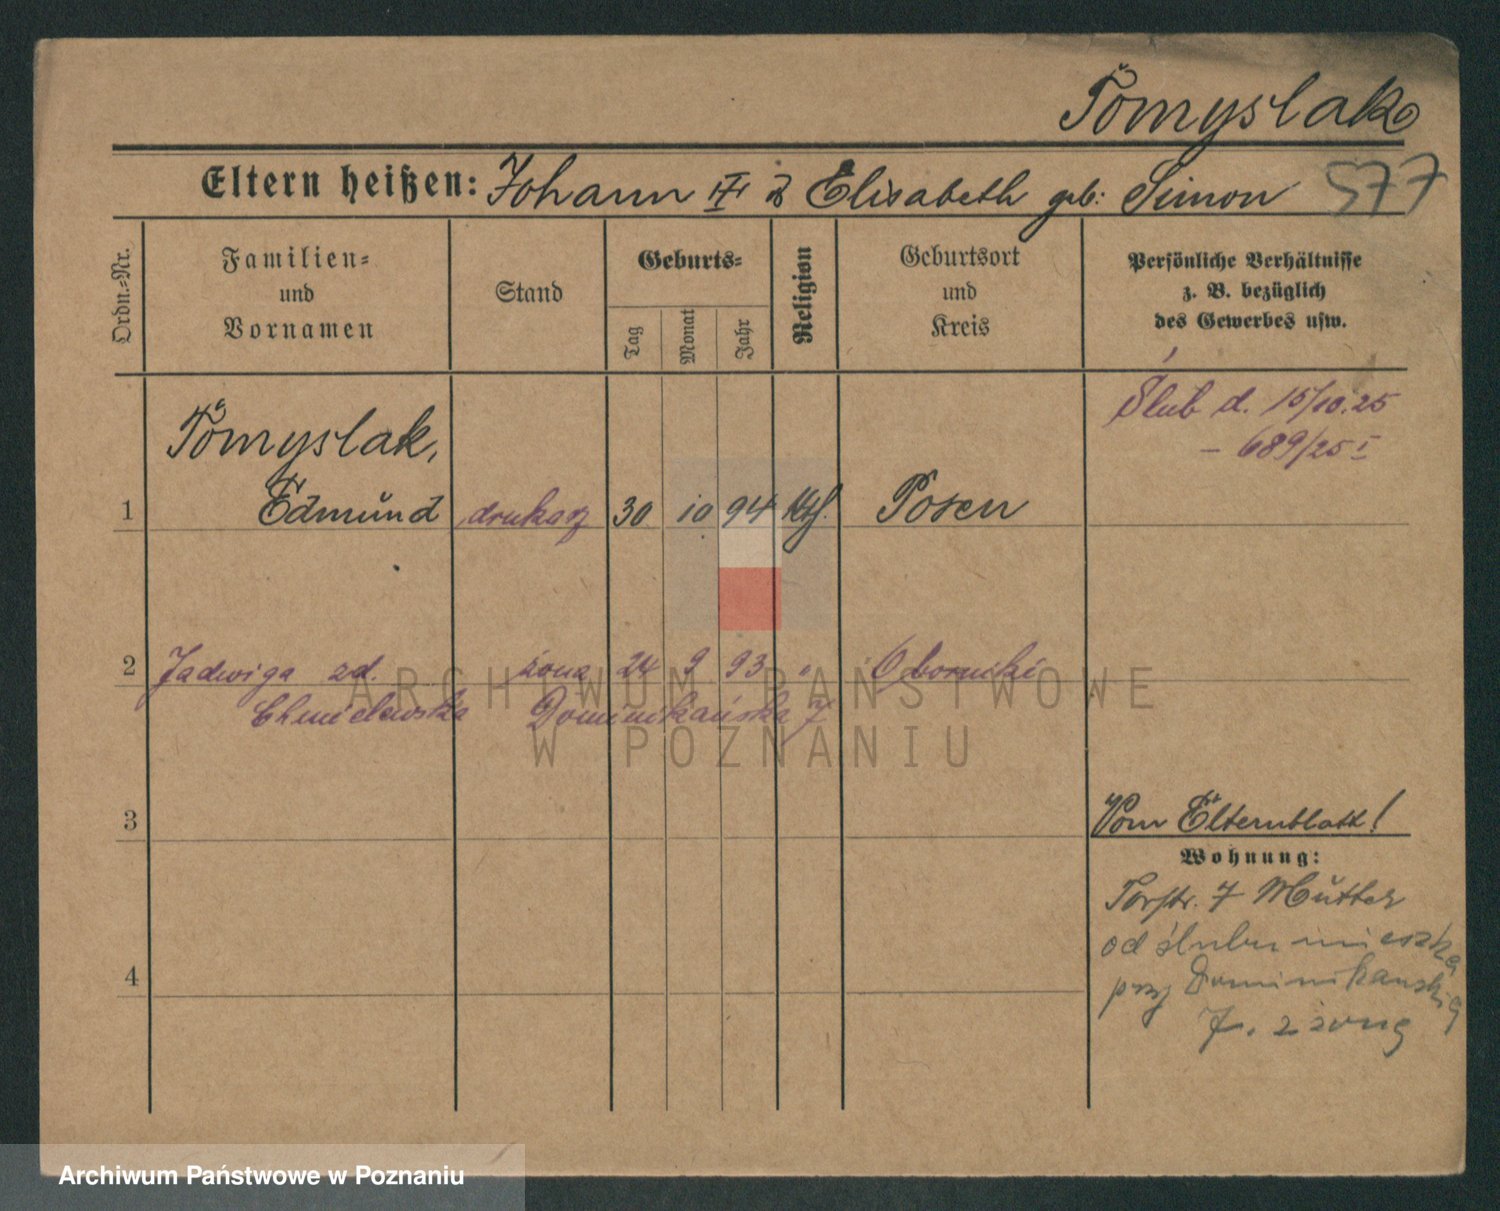 Tomyslak
577
Eltern heißen: Johann III & Elisabeth geb: Simon
Ordn.-Nr.
Familien- und Vornamen
Stand
Geburts-
Tag
Monat
Jahr
Religion
Geburtsort und Kreis
Persönliche Verhältnisse z. B. bezüglich des Gewerbes usw.
Ślub d. 15/10.25
- 689/25 I
Tomyslak,
1 Edmund drukarz 30 10 94 Kth. Posen
2 Jadwiga zd. żona 24 9 93 " Oborniki
Chmielewska Dominikańska 7
3
Vom Elternblatt!
Wohnung:
Torstr. 7 Mutter
od ślubu mieszka
4
przy Dominikanskiej
7. z żoną
ARCHIWUM PAŃSTWOWE
W POZNANIU
Archiwum Państwowe w Poznaniu